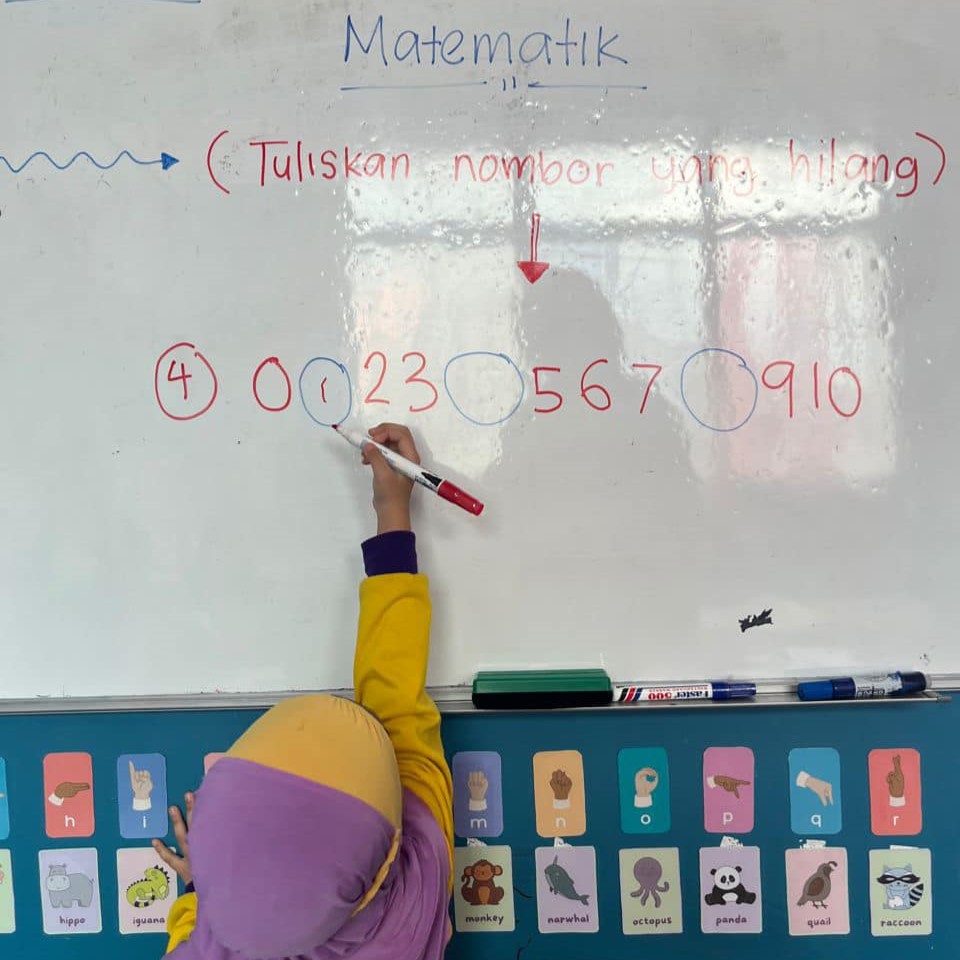 Matematik
(Tuliskan nombor yang hilang)
4 0 1 2 3 5 6 7 9 10
Faster 500
h i m n o p q r
hippo iguana monkey narwhal octopus panda quail raccoon